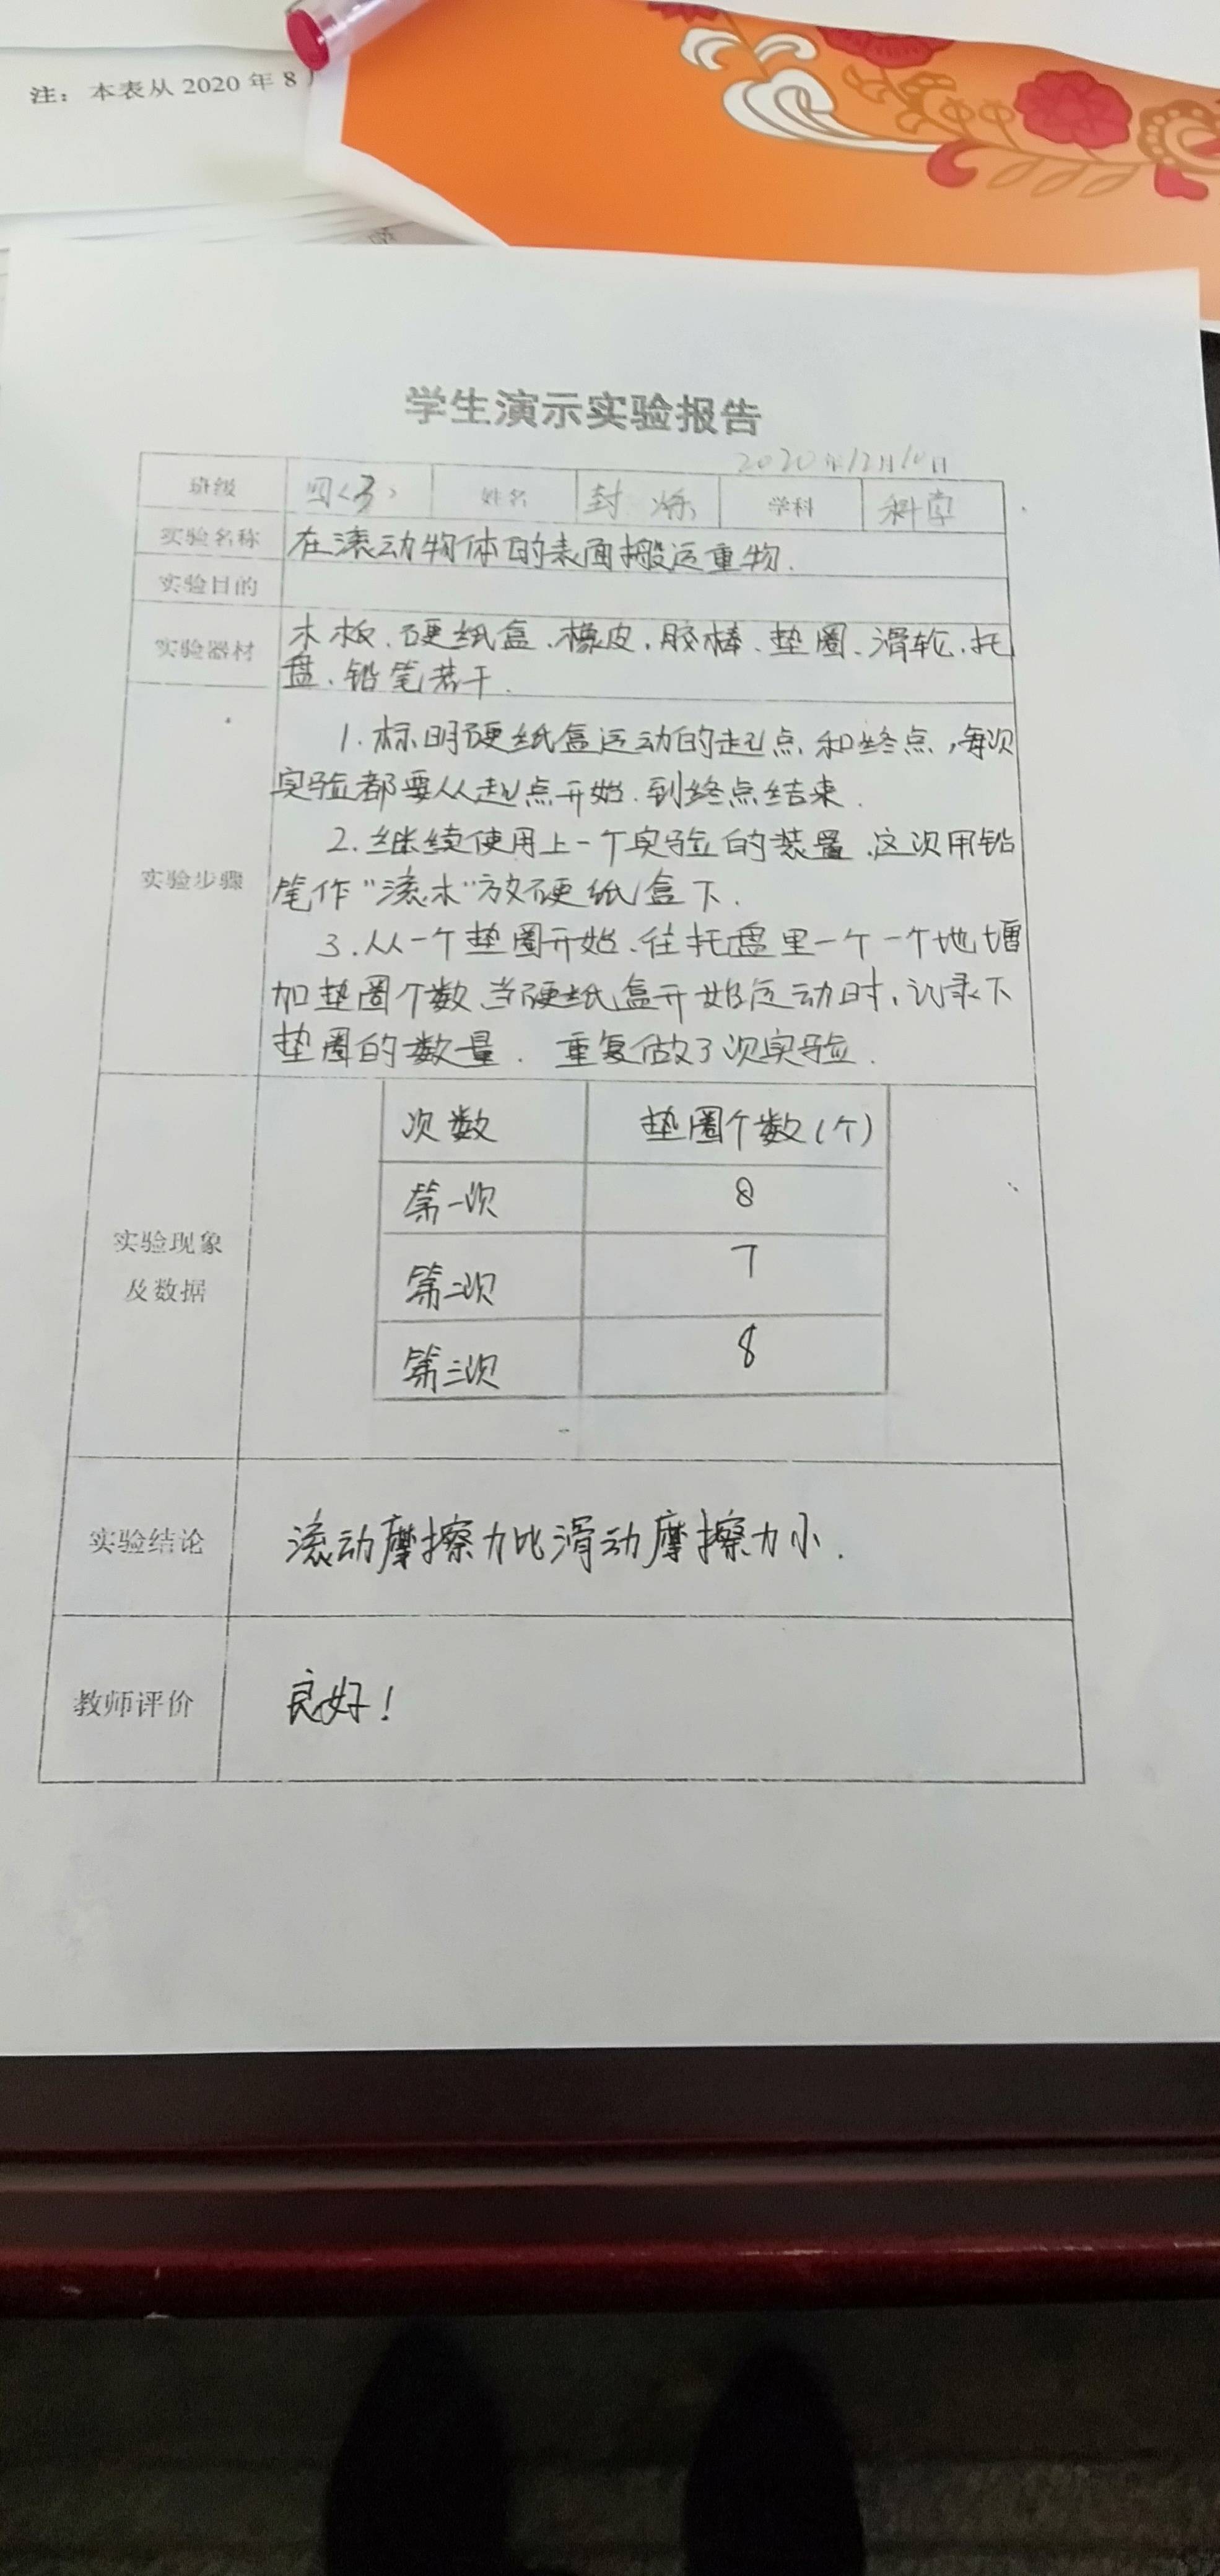 注：本表从 2020 年 8
学生演示实验报告
2020年12月10日
班级 四（3） 姓名 封烁 学科 科学
实验名称 在滚动物体的表面搬运重物.
实验目的
实验器材 木板、硬纸盒、橡皮、胶棒、垫圈、滑轮、托
盘、铅笔若干.
实验步骤
1. 标明硬纸盒运动的起点和终点,每次
实验都要从起点开始.到终点结束.
2. 继续使用上一个实验的装置.这次用铅
笔作"滚木"放硬纸盒下.
3. 从一个垫圈开始、往托盘里一个一个地增
加垫圈个数.当硬纸盒开始运动时,记录下
垫圈的数量. 重复做3次实验.
实验现象
及数据
次数 垫圈个数(个)
第一次 8
第二次 7
第三次 8
实验结论 滚动摩擦力比滑动摩擦力小.
教师评价 良好！